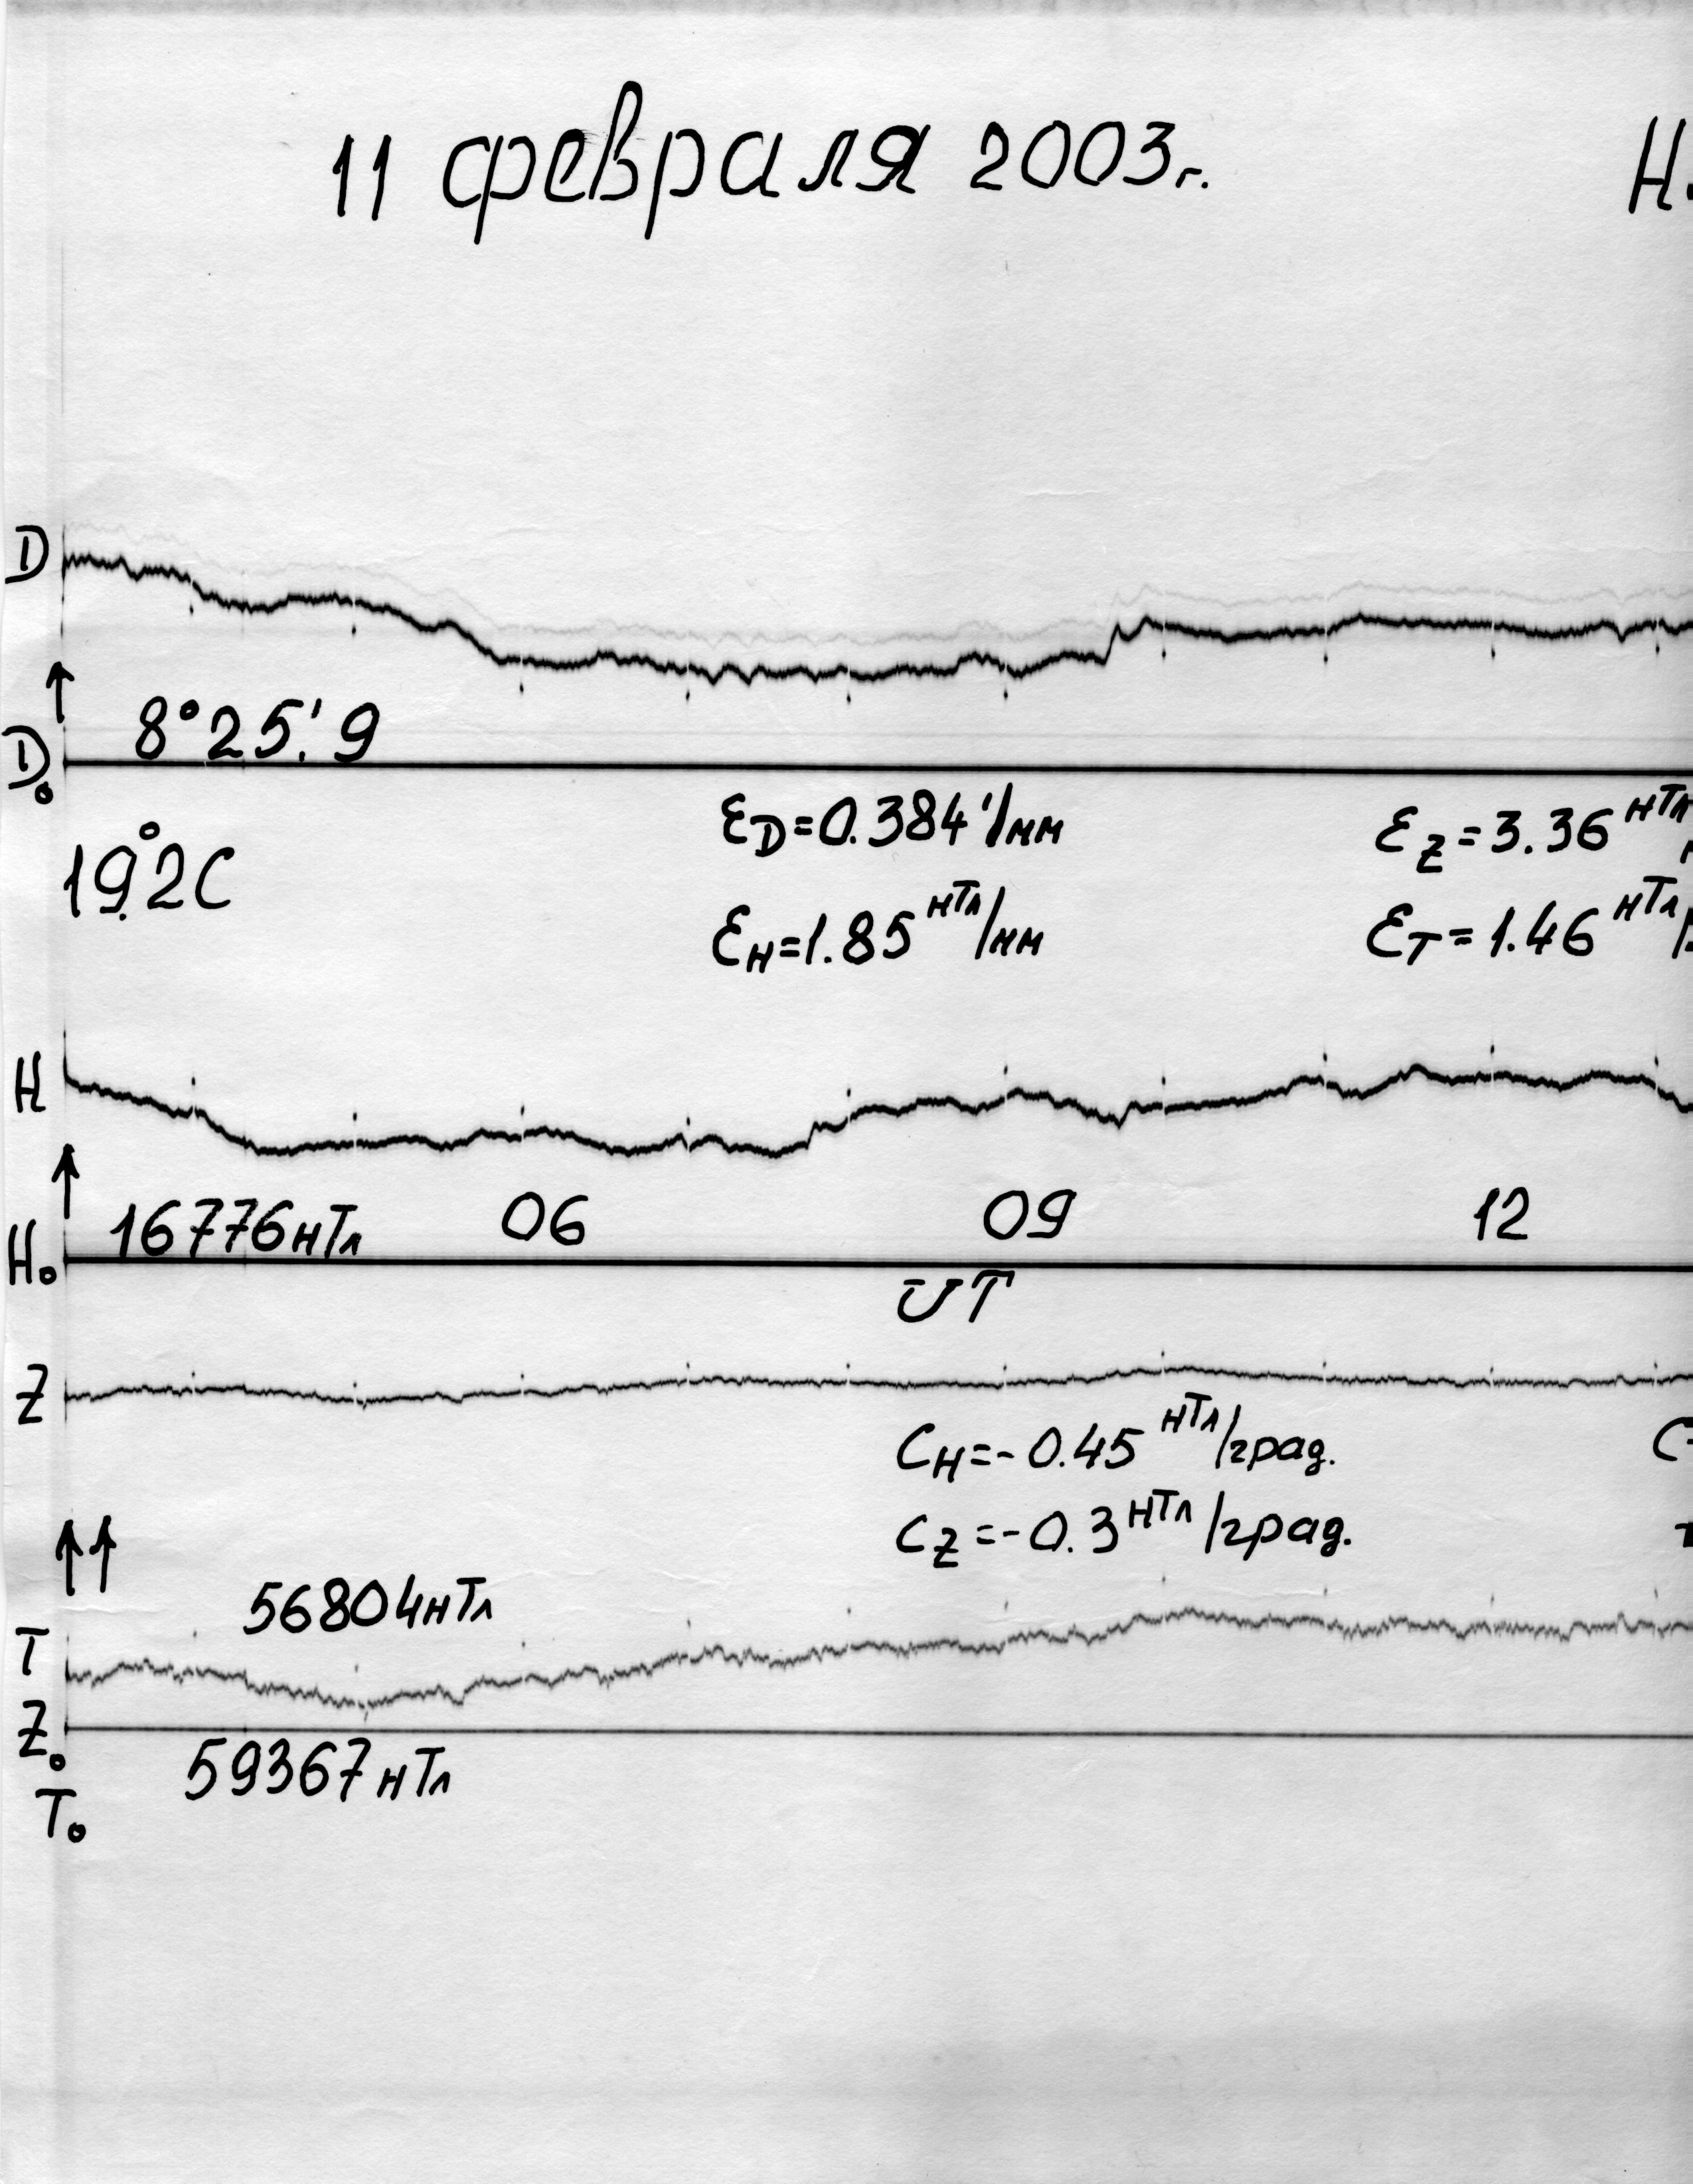 11 февраля 2003г.
Н.
D
8°25.'9
D₀
ƐD=0.384'/мм
ƐZ=3.36 нТл
19.°2С
ƐH=1.85 нТл/мм
ƐT=1.46 нТл/
H
16776нТл
06
09
12
H₀
UT
Z
CH=-0.45 нТл/град.
C
CZ=-0.3 нТл/град.
56804нТл
T
Z₀
59367нТл
T₀